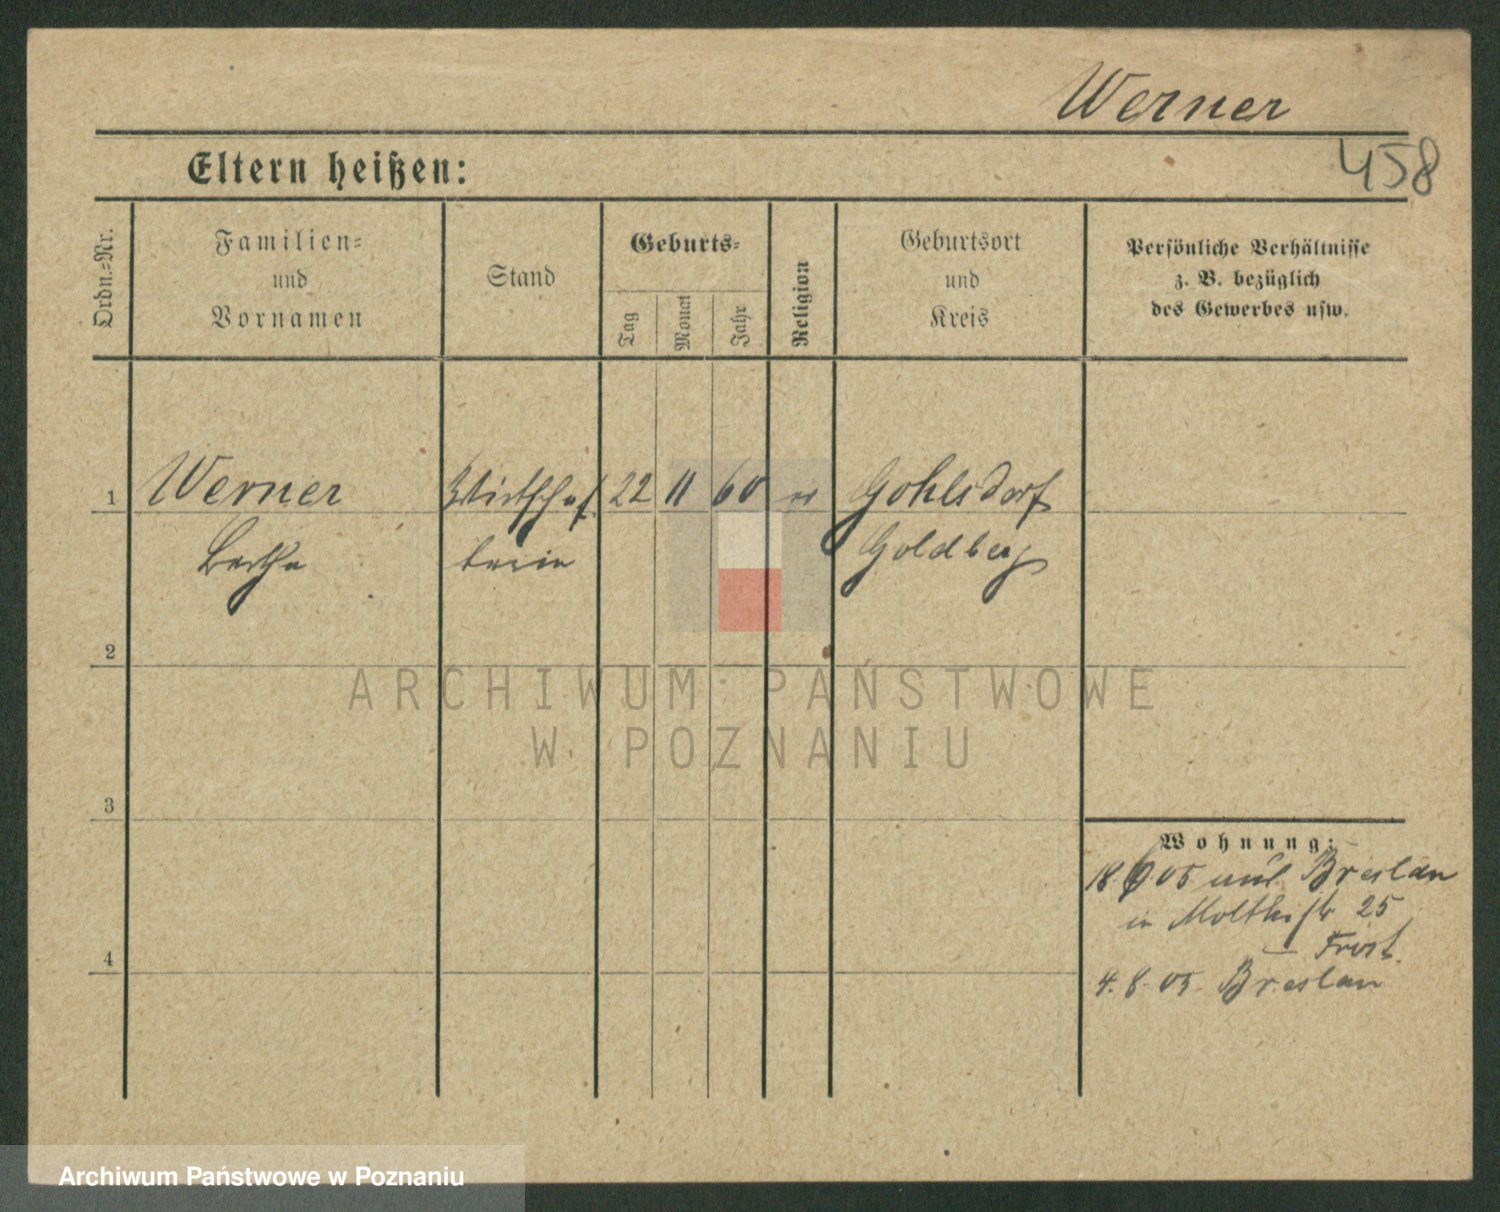 Werner
458
Eltern heißen:
Ordn.=Nr.
Familien=
und
Vornamen
Stand
Geburts=
Tag
Monat
Jahr
Religion
Geburtsort
und
Kreis
Persönliche Verhältnisse
z. B. bezüglich
des Gewerbes usw.
1 Werner Wirtschaf 22 11 60 ev Gohlsdorf
Bertha terin Goldberg
2
ARCHIWUM PAŃSTWOWE
W POZNANIU
3
Wohnung:
18. 6 05 aus Breslau
in Moltkestr 25
Frost.
4
4. 8. 05 Breslau
Archiwum Państwowe w Poznaniu